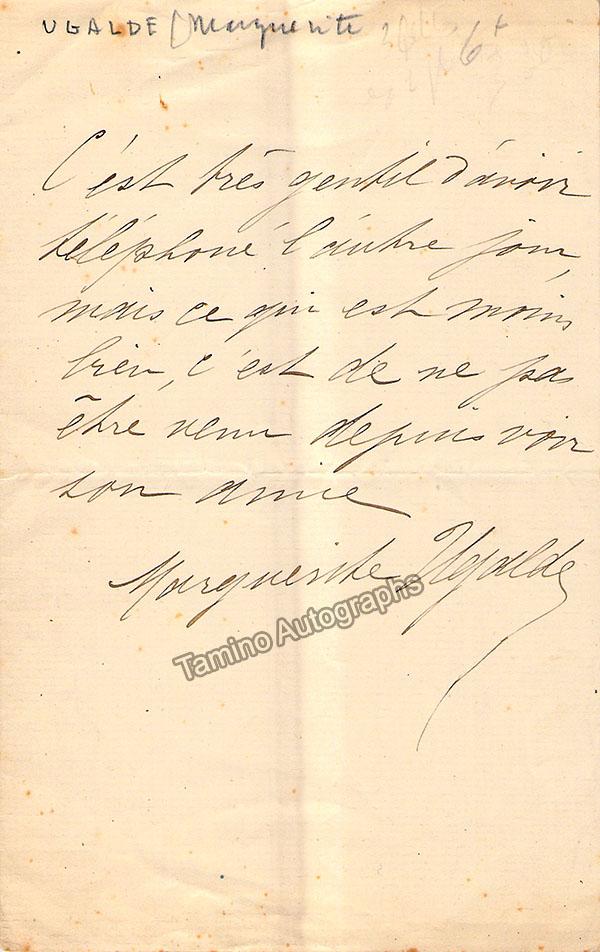 UGALDE (Marguerite
C'est très gentil d'avoir
téléphoné l'autre jour,
mais ce qui est moins
bien, c'est de ne pas
être venu depuis voir
son amie
Marguerite Ugalde
Tamino Autographs